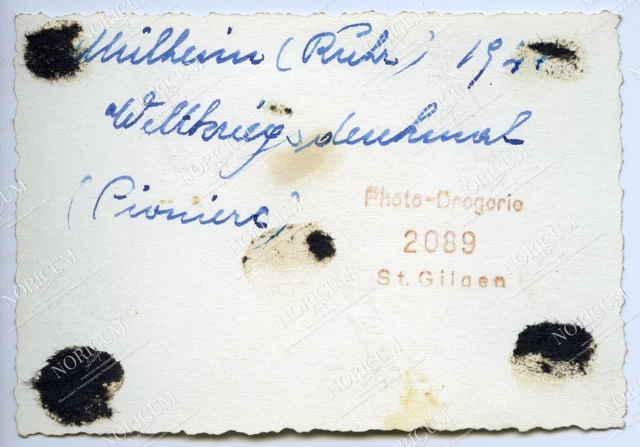 Mülheim (Ruhr)
Weltkriegsdenkmal
(Pioniere)
Photo-Drogerie
2089
St. Gilgen
NORICUM